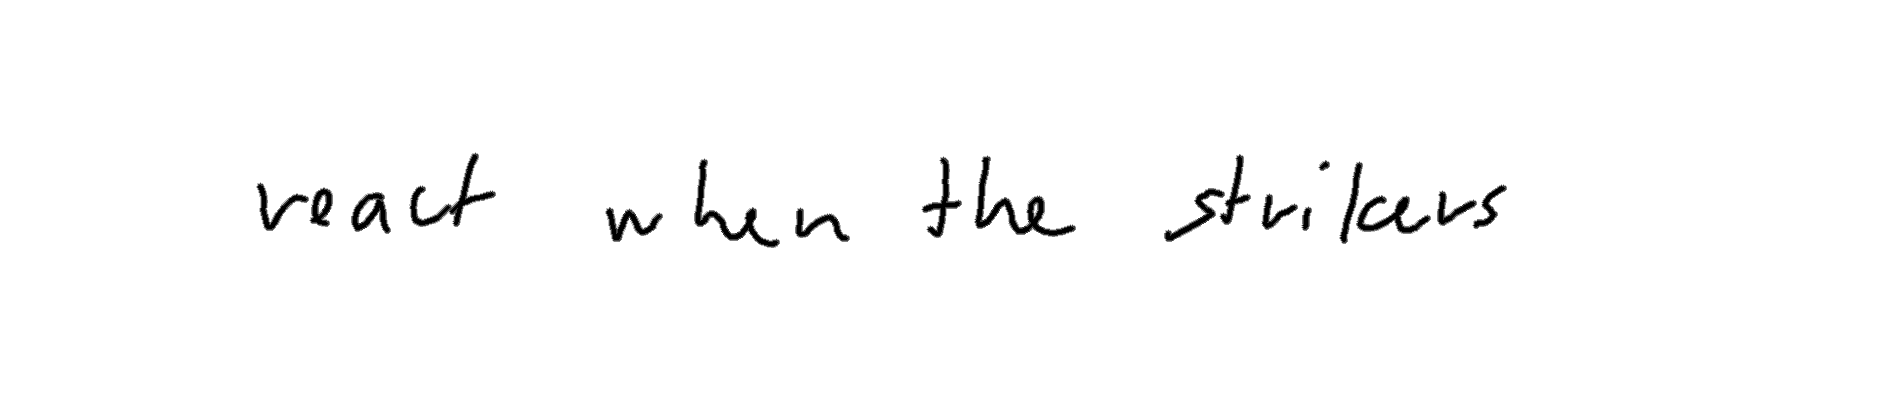 react when the strikers